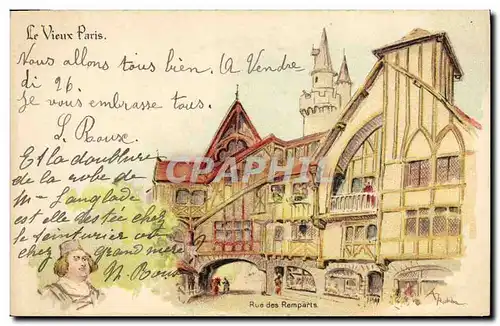 Le Vieux Paris.
Nous allons tous bien. (A Vendre
di 26.
Je vous embrasse tous.
Et la doublure
de la robe de
m- Langlade
est elle chez
le teinturier ou
chez grand mère?
CPARAMA
Rue des Remparts